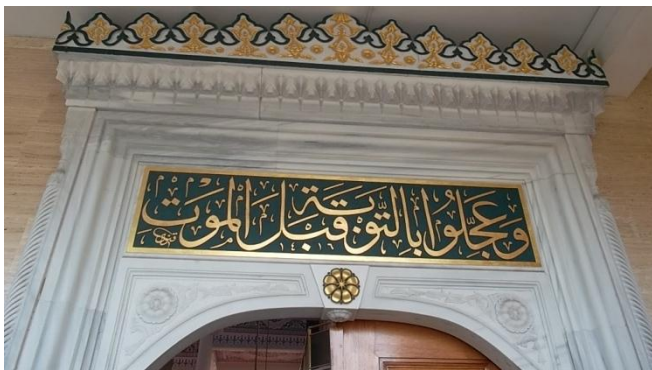 وَعَجِّلُوا بِالتَّوْبَةِ قَبْلَ الْمَوْتِ